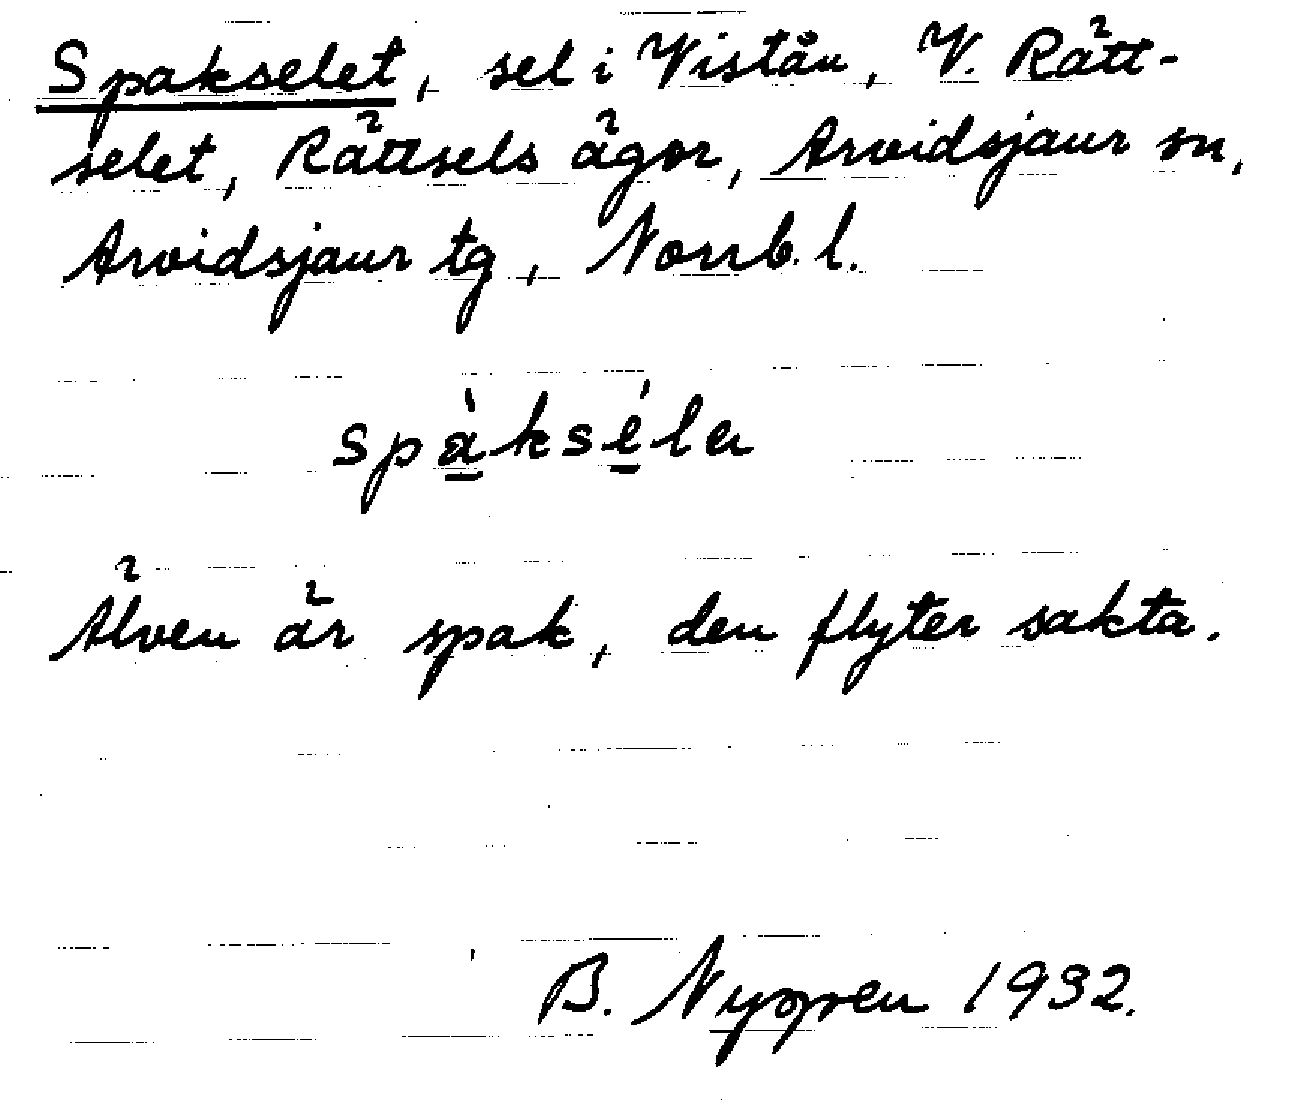 Spakselet, sel i Viståu, V. Rätt-
selet, Rättsels ägor, Arvidsjaur sn,
Arvidsjaur tg, Norrb. l.
spàkséla
Älven är spak, den flyter sakta.
B. 1932.